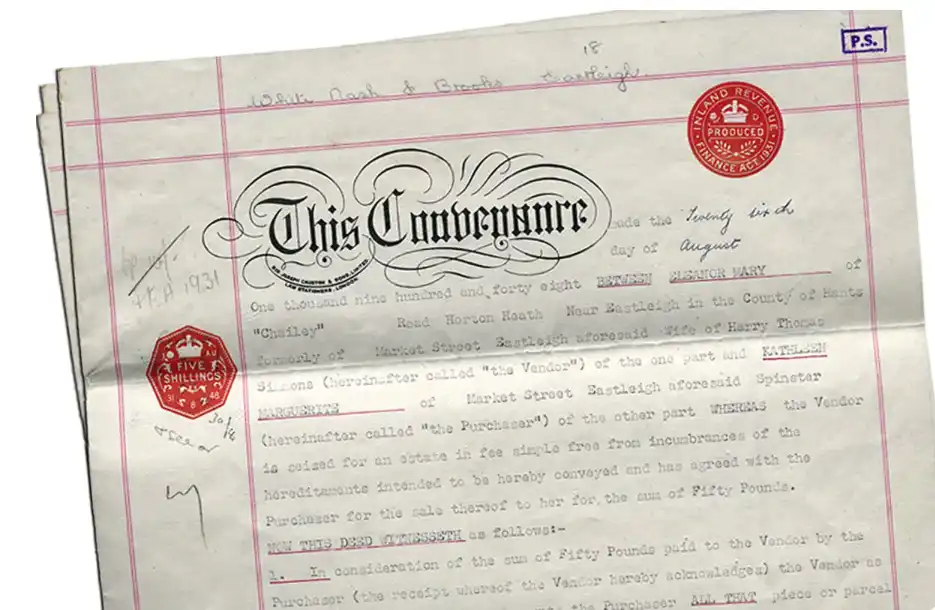 P.S.
18
White Nash & Brooks Eastleigh.
INLAND REVENUE
PRODUCED
FINANCE ACT 1931
This Conveyance made the Twenty sixth
SIR JOSEPH CAUSTON & SONS, LIMITED
LAW STATIONERS, LONDON.
day of August
1931
One thousand nine hundred and forty eight BETWEEN ELEANOR MARY of
"Chailey" Road Horton Heath Near Eastleigh in the County of Hants
formerly of Market Street Eastleigh aforesaid Wife of Harry Thomas
FIVE
SHILLINGS
31 8 48
Simmons (hereinafter called "the Vendor") of the one part and KATHLEEN
MARGUERITE of Market Street Eastleigh aforesaid Spinster
(hereinafter called "the Purchaser") of the other part WHEREAS the Vendor
is seized for an estate in fee simple free from incumbrances of the
hereditaments intended to be hereby conveyed and has agreed with the
Purchaser for the sale thereof to her for the sum of Fifty Pounds.
NOW THIS DEED WITNESSETH as follows:-
1. In consideration of the sum of Fifty Pounds paid to the Vendor by the
Purchaser (the receipt whereof the Vendor hereby acknowledges) the Vendor as
the Purchaser ALL THAT piece or parcel